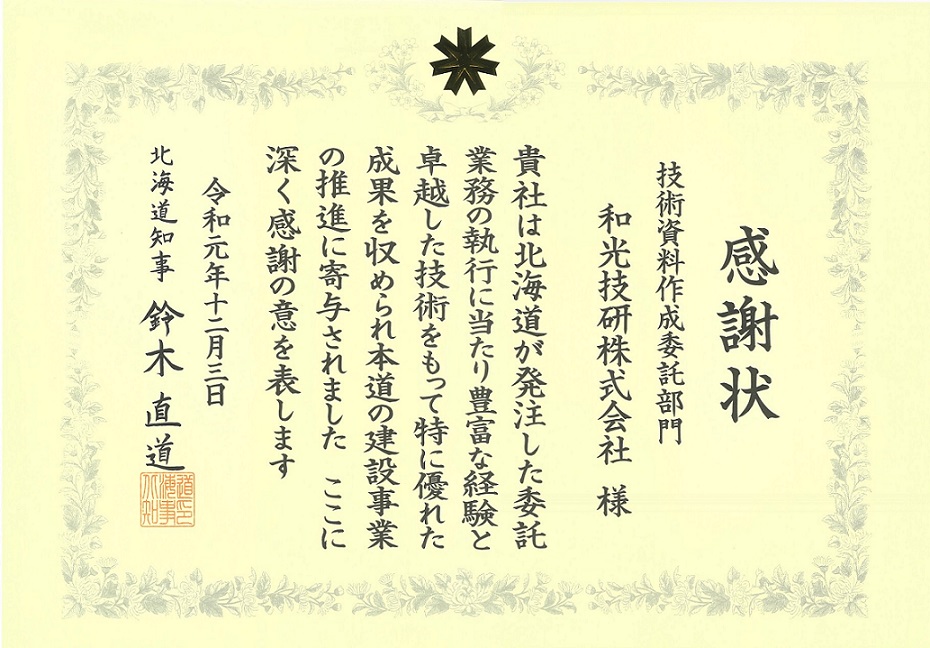 感謝状
技術資料作成委託部門
和光技研株式会社 様
貴社は北海道が発注した委託
業務の執行に当たり豊富な経験と
卓越した技術をもって特に優れた
成果を収められ本道の建設事業
の推進に寄与されました ここに
深く感謝の意を表します
令和元年十二月三日
北海道知事 鈴木直道